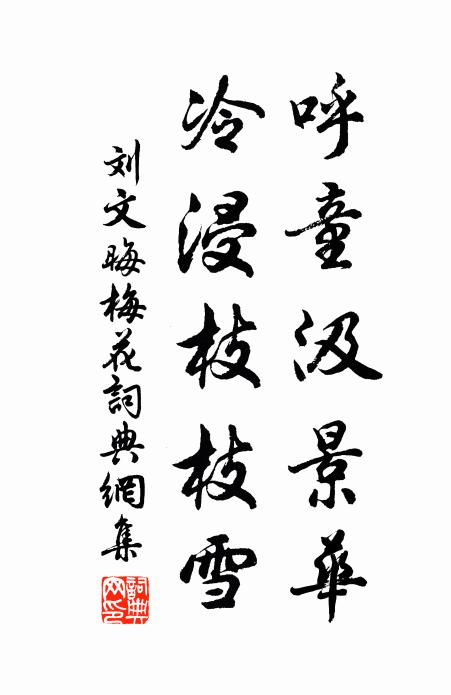 呼童汲景華
冷浸枝枝雪
刘文晦梅花詞典網集
詞典网印